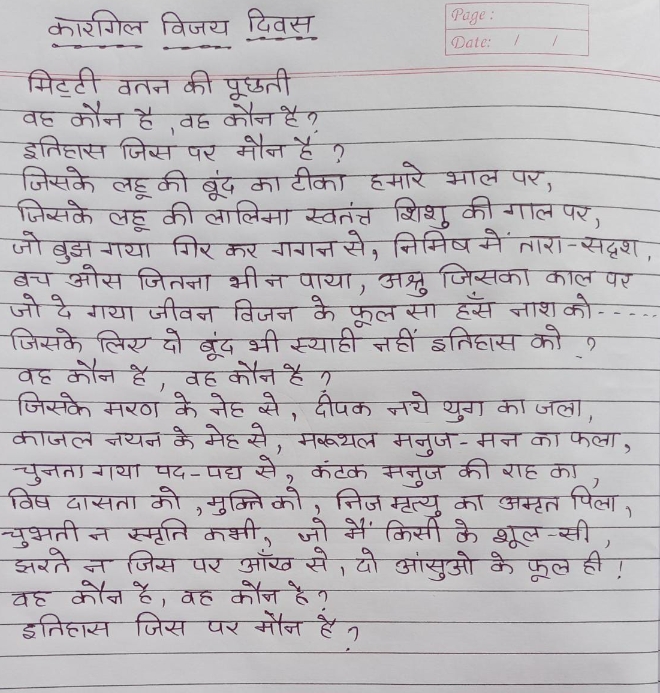 कारगिल विजय दिवस
Page:
Date: / /
मिट्टी वतन की पूछती
वह कौन है, वह कौन है?
इतिहास जिस पर मौन है?
जिसके लहू की बूंद का टीका हमारे भाल पर,
जिसके लहू की लालिमा स्वतंत्र शिशु की गाल पर,
जो बुझ गया गिर कर गगन से, निमिष में तारा-सदृश,
बच ओस जितना भी न पाया, अश्रु जिसका काल पर
जो दे गया जीवन विजन के फूल सा हँस नाश को-----
जिसके लिए दो बूंद भी स्याही नहीं इतिहास को?
वह कौन है, वह कौन है?
जिसके मरण के नेह से, दीपक नये युग का जला,
काजल नयन के मेह से, मरूथल मनुज-मन का फला,
चुनता गया पद-पद्य से, कंटक मनुज की राह का,
विष दासता को, मुक्ति को, निज मृत्यु का अमृत पिला,
चुभती न स्मृति कभी, जो मैं किसी के शूल-सी,
झरते न जिस पर आँख से, दो आंसुओ के फूल ही!
वह कौन है, वह कौन है?
इतिहास जिस पर मौन है?